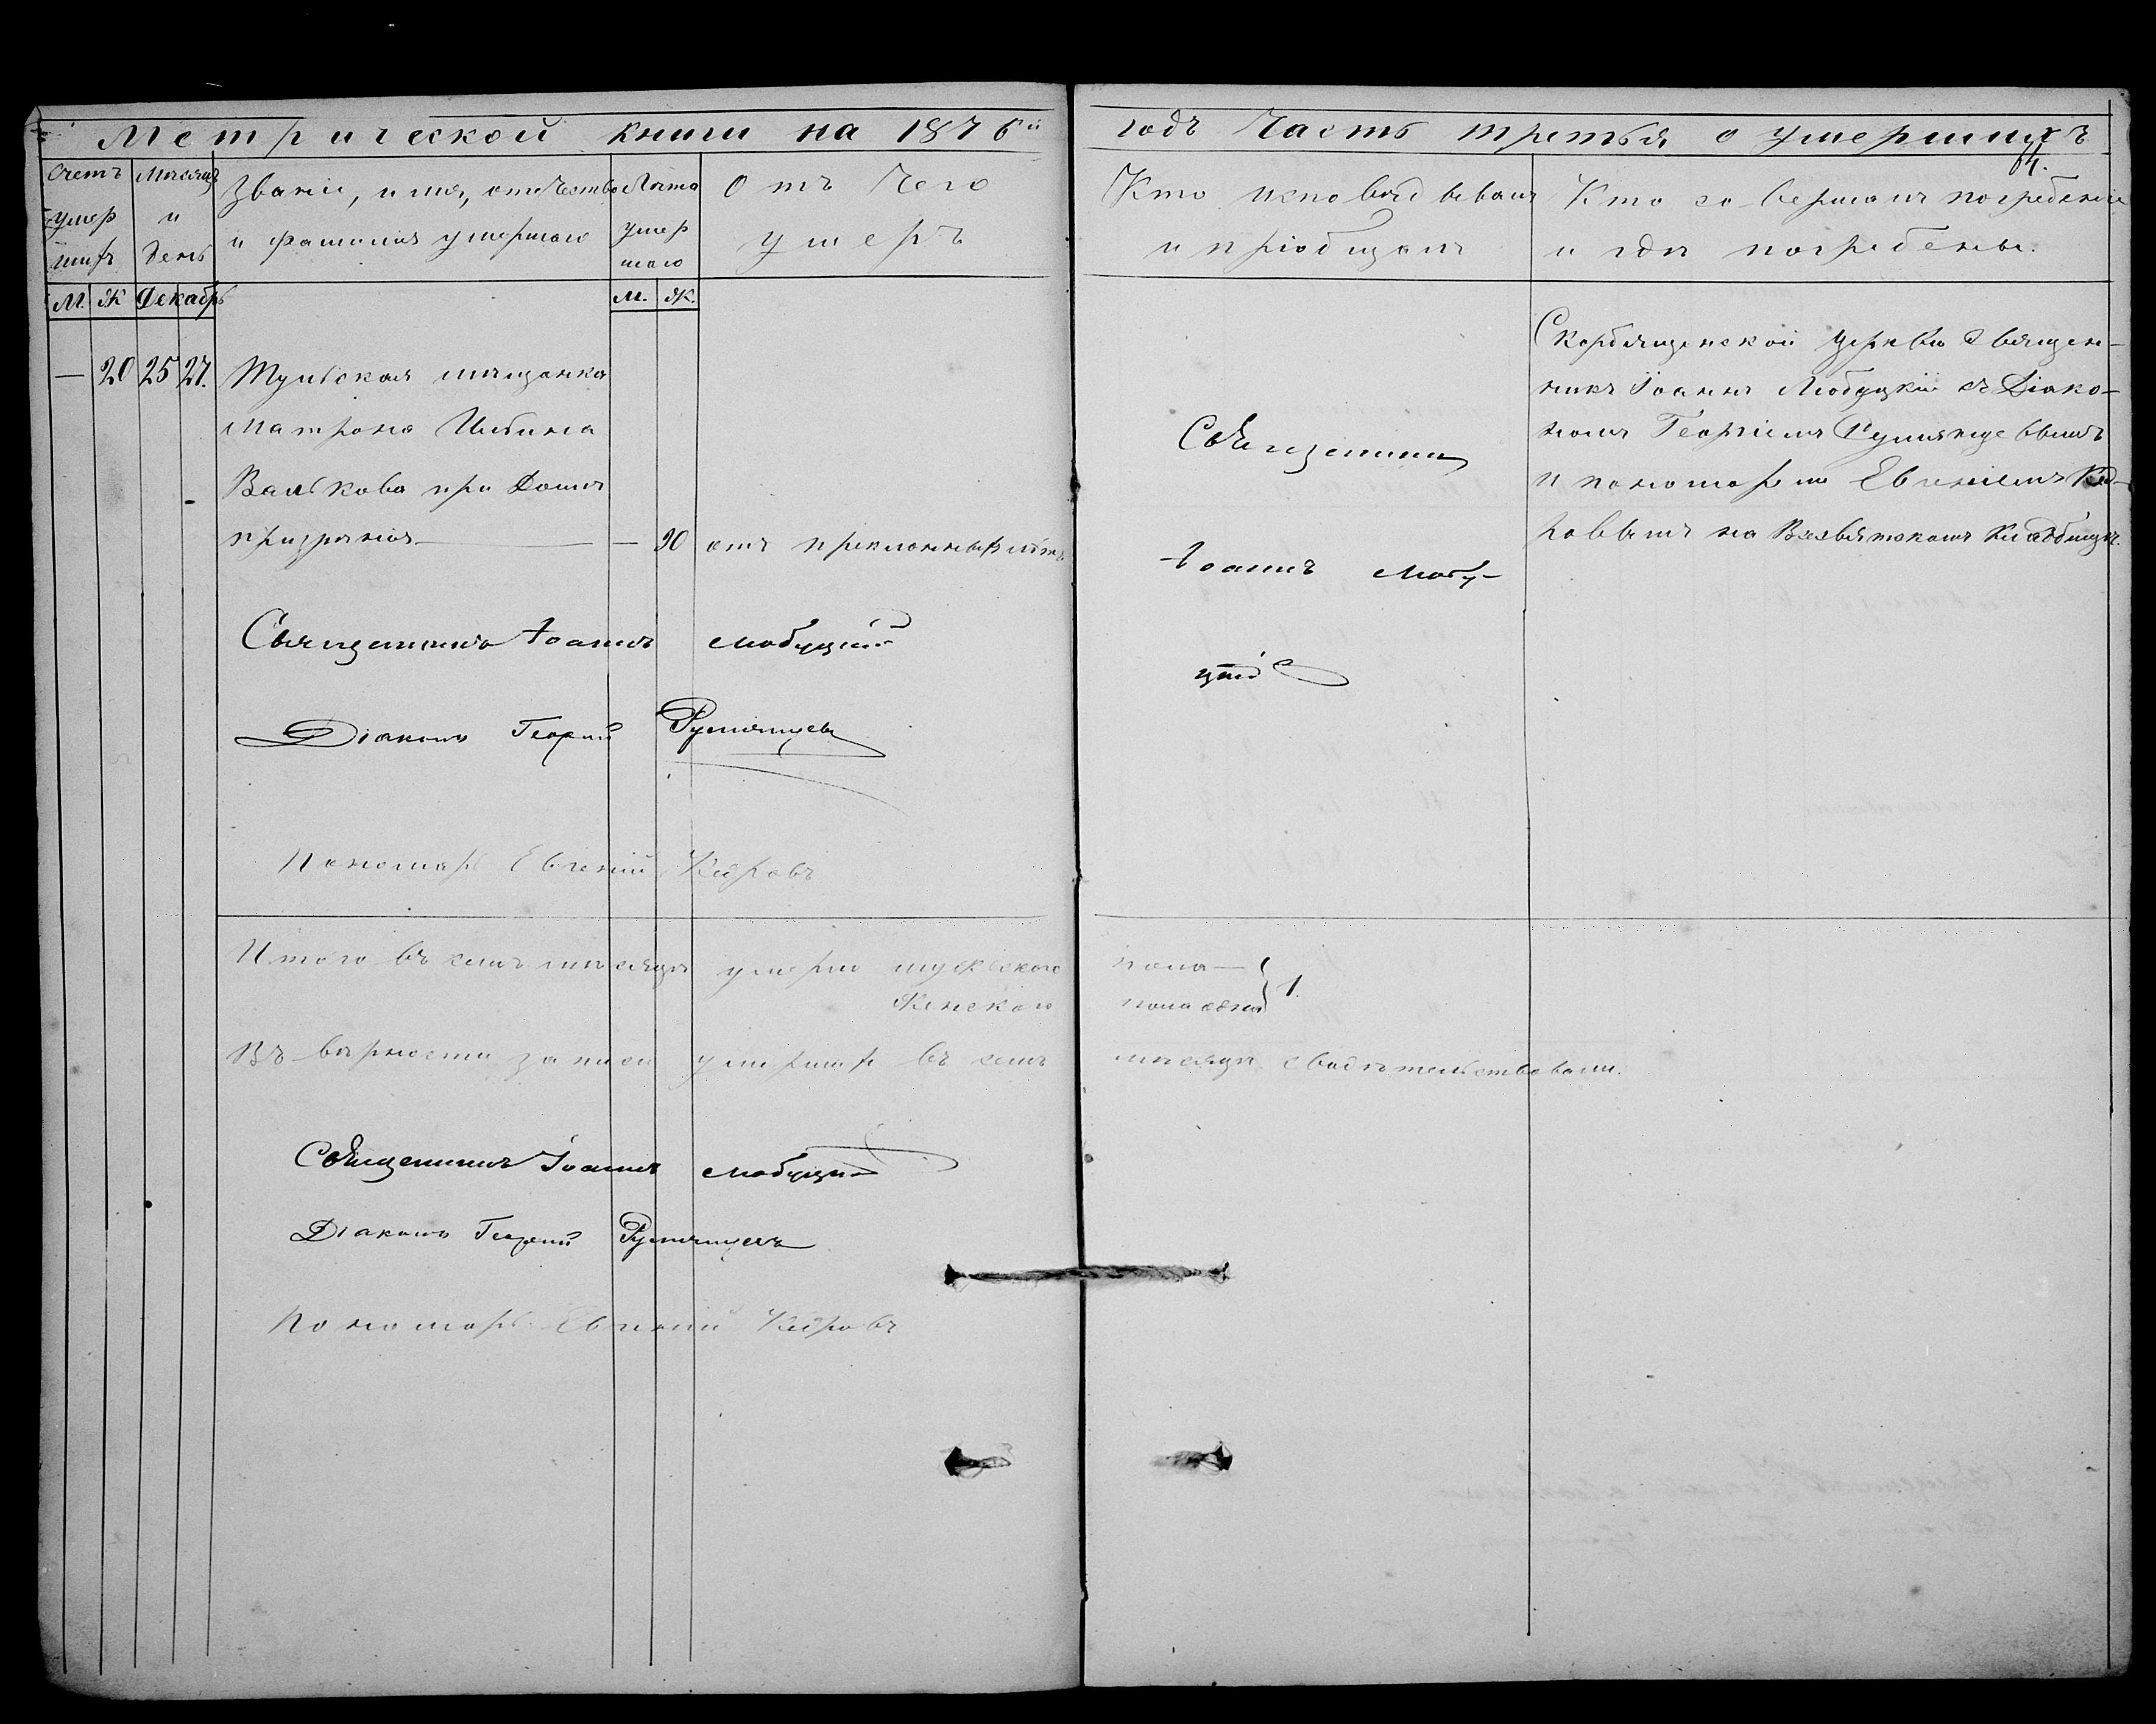 Метрической книги на 1876й
годъ Часть третья о умершихъ
84.
Счетъ умершихъ
Месяцъ и день
Званіе, имя, отечество
и фамилія умершаго
Лѣта умершаго
Отъ чего
умеръ
Кто исповѣдывалъ
и пріобщалъ
Кто совершалъ погребеніе
и гдѣ погребены.
М. Ж Декабрь М. Ж.
— 20 25 27. Тульская мѣщанка
Матрона
Валькова при Домѣ
призрѣнія — — 90 отъ преклонныхъ лѣтъ
Священникъ
Іоаннъ Любу-
цкій
Скорбященской церкви Священ-
никъ Іоаннъ Любуцкій съ Діако-
номъ Георгіемъ Румянцевымъ
и пономаремъ Евгеніемъ Кед-
ровымъ на Всехвятскомъ Кладбищѣ.
Священникъ Іоаннъ Любуцкій
Діаконъ Георгій Румянцевъ
Пономарь Евгеній Кедровъ
Итого въ семъ мѣсяцѣ умерло мужескаго пола —
Женскаго пола одна } 1.
Въ вѣрности записи умершихъ въ семъ мѣсяцѣ свидѣтельствовали.
Священникъ Іоаннъ Любуцкій
Діаконъ Георгій Румянцевъ
Пономарь Евгеній Кедровъ